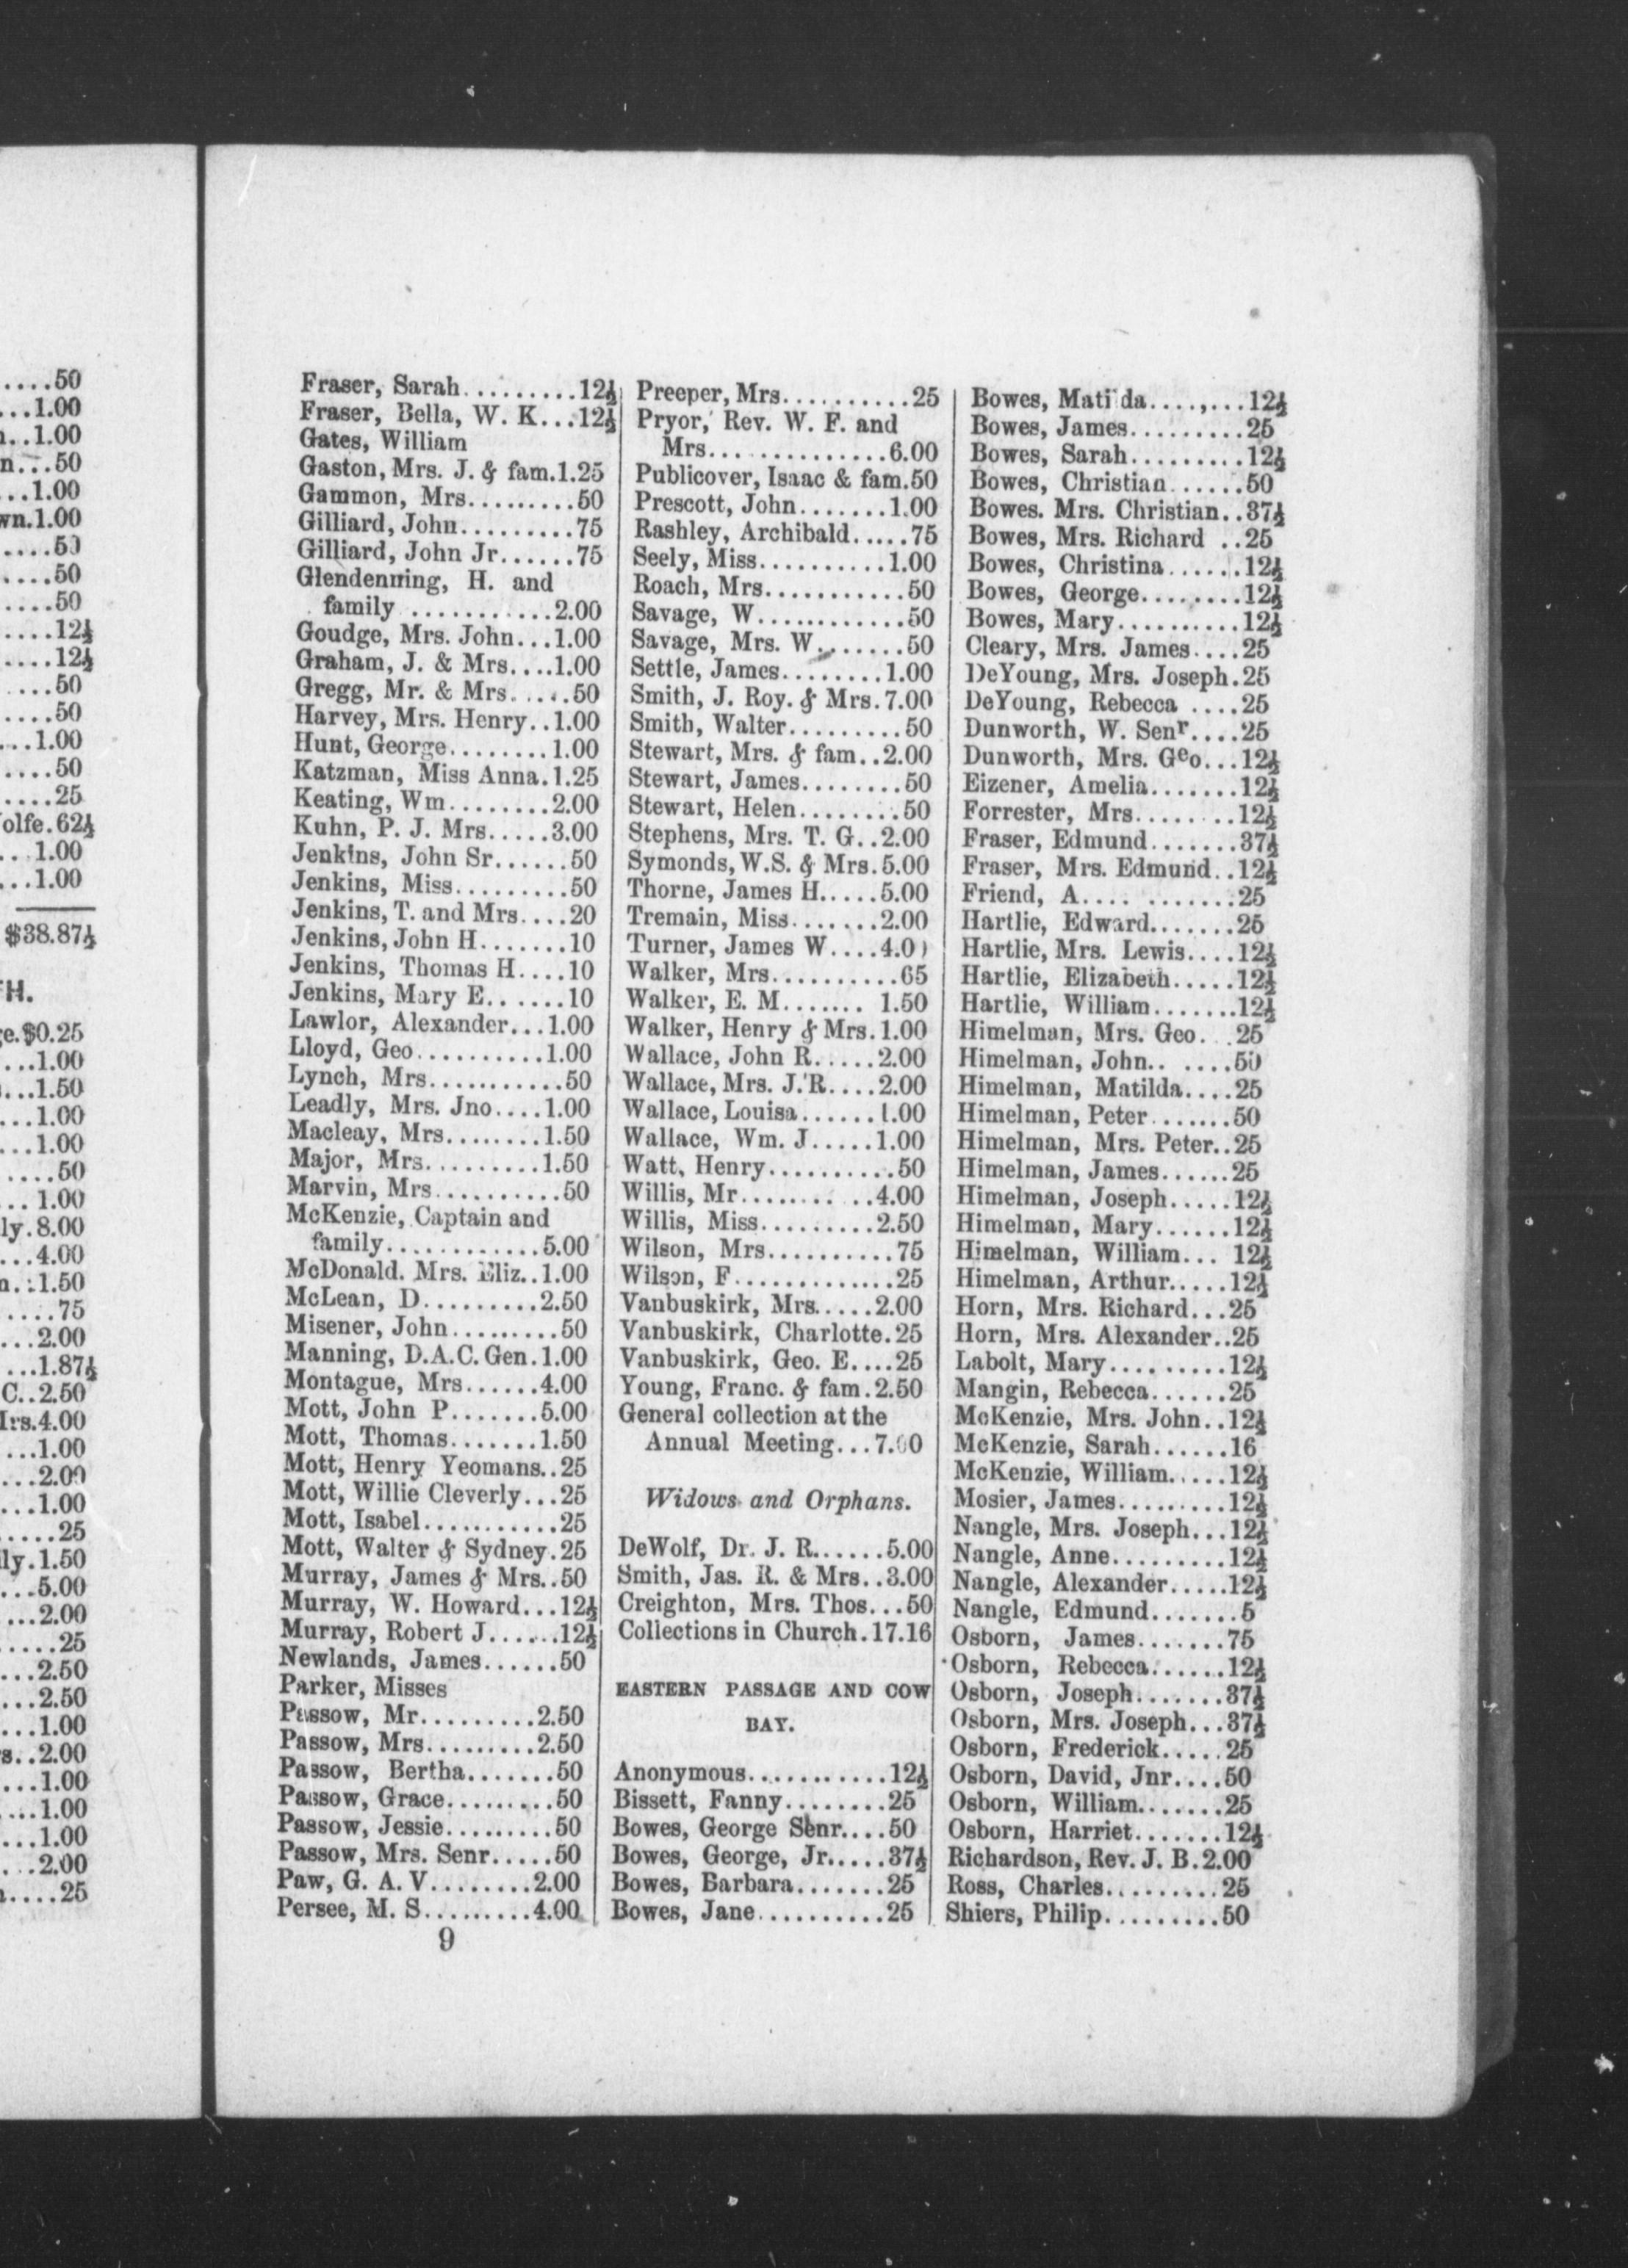 ....50
...1.00
..1.00
n...50
...1.00
wn.1.00
....50
....50
....50
....12½
....12½
....50
....50
...1.00
....50
....25
olfe.62½
...1.00
...1.00
$38.87½
H.
e.$0.25
...1.00
...1.50
...1.00
...1.00
....50
...1.00
ly.8.00
...4.00
1.50
....75
...2.00
...1.87½
C..2.50
Mrs.4.00
...1.00
...2.00
...1.00
.....25
ly.1.50
...5.00
...2.00
.....25
...2.50
...2.50
...1.00
s..2.00
...1.00
...1.00
...1.00
...2.00
....25
Fraser, Sarah..........12½
Fraser, Bella, W. K...12½
Gates, William
Gaston, Mrs. J. & fam.1.25
Gammon, Mrs.........50
Gilliard, John.........75
Gilliard, John Jr......75
Glendenning, H. and
family ............2.00
Goudge, Mrs. John...1.00
Graham, J. & Mrs....1.00
Gregg, Mr. & Mrs.....50
Harvey, Mrs. Henry..1.00
Hunt, George........1.00
Katzman, Miss Anna.1.25
Keating, Wm........2.00
Kuhn, P. J. Mrs.....3.00
Jenkins, John Sr......50
Jenkins, Miss.........50
Jenkins, T. and Mrs....20
Jenkins, John H.......10
Jenkins, Thomas H....10
Jenkins, Mary E.......10
Lawlor, Alexander...1.00
Lloyd, Geo..........1.00
Lynch, Mrs...........50
Leadly, Mrs. Jno....1.00
Macleay, Mrs........1.50
Major, Mrs.........1.50
Marvin, Mrs..........50
McKenzie, Captain and
family.............5.00
McDonald. Mrs. Eliz..1.00
McLean, D.........2.50
Misener, John.........50
Manning, D.A.C. Gen.1.00
Montague, Mrs......4.00
Mott, John P.......5.00
Mott, Thomas.......1.50
Mott, Henry Yeomans..25
Mott, Willie Cleverly...25
Mott, Isabel...........25
Mott, Walter & Sydney.25
Murray, James & Mrs..50
Murray, W. Howard...12½
Murray, Robert J......12½
Newlands, James......50
Parker, Misses
Passow, Mr.........2.50
Passow, Mrs.........2.50
Passow, Bertha.......50
Passow, Grace.........50
Passow, Jessie.........50
Passow, Mrs. Senr.....50
Paw, G. A. V.........2.00
Persee, M. S.........4.00
9
Preeper, Mrs..........25
Pryor, Rev. W. F. and
Mrs...............6.00
Publicover, Isaac & fam.50
Prescott, John.......1.00
Rashley, Archibald.....75
Seely, Miss..........1.00
Roach, Mrs...........50
Savage, W............50
Savage, Mrs. W.......50
Settle, James........1.00
Smith, J. Roy. & Mrs.7.00
Smith, Walter.........50
Stewart, Mrs. & fam..2.00
Stewart, James........50
Stewart, Helen........50
Stephens, Mrs. T. G..2.00
Symonds, W.S. & Mrs.5.00
Thorne, James H.....5.00
Tremain, Miss.......2.00
Turner, James W....4.0)
Walker, Mrs..........65
Walker, E. M....... 1.50
Walker, Henry & Mrs.1.00
Wallace, John R.....2.00
Wallace, Mrs. J. R....2.00
Wallace, Louisa......1.00
Wallace, Wm. J.....1.00
Watt, Henry..........50
Willis, Mr...........4.00
Willis, Miss.........2.50
Wilson, Mrs..........75
Wilson, F.............25
Vanbuskirk, Mrs.....2.00
Vanbuskirk, Charlotte.25
Vanbuskirk, Geo. E....25
Young, Franc. & fam.2.50
General collection at the
Annual Meeting...7.00
Widows and Orphans.
DeWolf, Dr. J. R......5.00
Smith, Jas. R. & Mrs..3.00
Creighton, Mrs. Thos...50
Collections in Church.17.16
EASTERN PASSAGE AND COW
BAY.
Anonymous............12½
Bissett, Fanny........25
Bowes, George Senr....50
Bowes, George, Jr.....37½
Bowes, Barbara.......25
Bowes, Jane..........25
Bowes, Mati da....,...12½
Bowes, James.........25
Bowes, Sarah.........12½
Bowes, Christian......50
Bowes. Mrs. Christian..37½
Bowes, Mrs. Richard ..25
Bowes, Christina......12½
Bowes, George........12½
Bowes, Mary..........12½
Cleary, Mrs. James....25
DeYoung, Mrs. Joseph.25
DeYoung, Rebecca ....25
Dunworth, W. Senr....25
Dunworth, Mrs. Geo...12½
Eizener, Amelia.......12½
Forrester, Mrs........12½
Fraser, Edmund.......37½
Fraser, Mrs. Edmund..12½
Friend, A.... .......25
Hartlie, Edward.......25
Hartlie, Mrs. Lewis....12½
Hartlie, Elizabeth.....12½
Hartlie, William.......12½
Himelman, Mrs. Geo...25
Himelman, John.. ....50
Himelman, Matilda....25
Himelman, Peter.......50
Himelman, Mrs. Peter..25
Himelman, James......25
Himelman, Joseph.....12½
Himelman, Mary......12½
Himelman, William... 12½
Himelman, Arthur.....12½
Horn, Mrs. Richard...25
Horn, Mrs. Alexander..25
Labolt, Mary.........12½
Mangin, Rebecca......25
McKenzie, Mrs. John..12½
McKenzie, Sarah......16
McKenzie, William.....12½
Mosier, James.........12½
Nangle, Mrs. Joseph...12½
Nangle, Anne.........12½
Nangle, Alexander.....12½
Nangle, Edmund.......5
Osborn, James.......75
Osborn, Rebecca......12½
Osborn, Joseph.......37½
Osborn, Mrs. Joseph...37½
Osborn, Frederick.....25
Osborn, David, Jnr....50
Osborn, William.......25
Osborn, Harriet.......12½
Richardson, Rev. J. B.2.00
Ross, Charles.........25
Shiers, Philip.........50